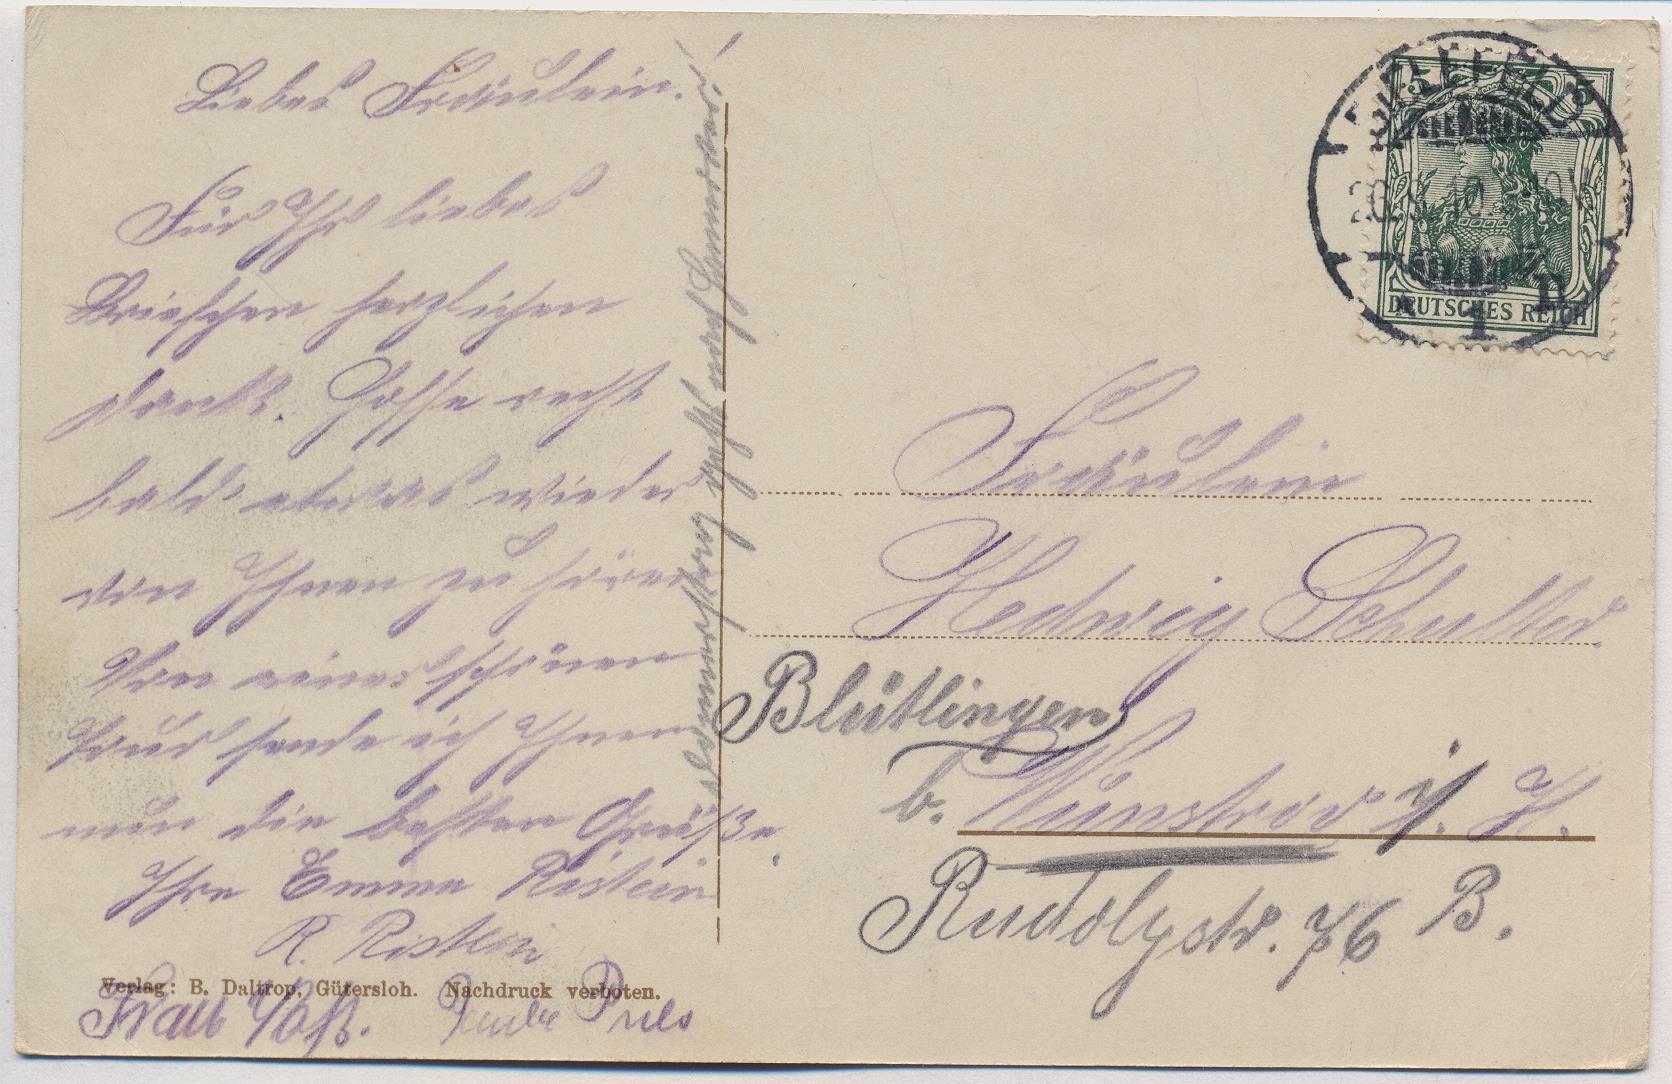 Liebes Fräulein!
Für Ihr liebes
Briefchen herzlichen
Dank. Hoffe recht
bald etwas wieder
von Ihnen zu hören
Von einer schönen
Tour sende ich Ihnen
nun die besten Grüße.
Ihre Emma Ristein
R. Ristein
Frau
Verlag: B. Daltrop, Gütersloh. Nachdruck verboten.
BIELEFELD
5
DEUTSCHES REICH
Fräulein
Hedwig Schulter
Blütlingen
b. Wunstrov i. H.
Rudolfstr. 76 B.